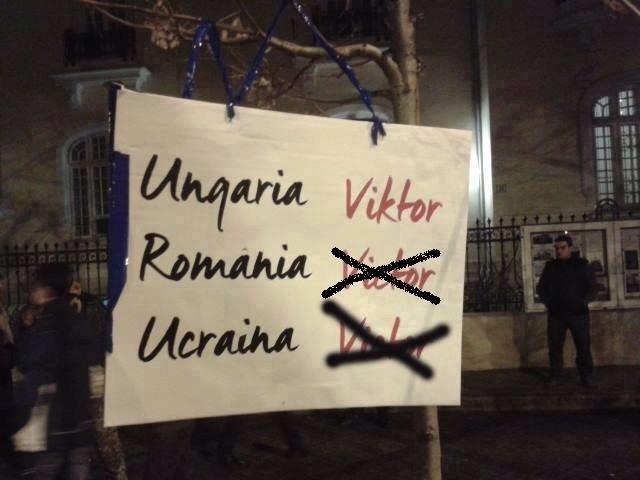 Ungaria Viktor
România Victor
Ucraina Victor